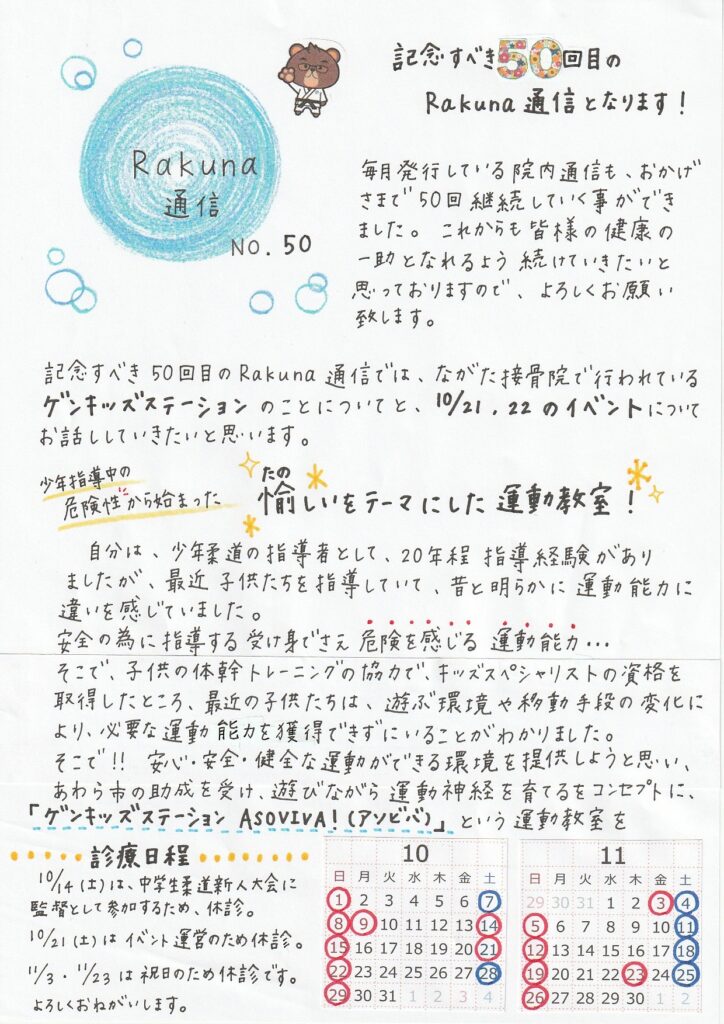 記念すべき50回目の
Rakuna通信となります！
Rakuna
通信
NO. 50
毎月発行している院内通信も、おかげ
さまで50回継続していく事ができ
ました。これからも皆様の健康の
一助となれるよう続けていきたいと
思っておりますので、よろしくお願い
致します。
記念すべき50回目のRakuna通信では、ながた接骨院で行われている
ゲンキッズステーションのことについてと、10/21.22のイベントについて
お話ししていきたいと思います。
少年指導中の
危険性から始まった
たの
愉しいをテーマにした運動教室！
自分は、少年柔道の指導者として、20年程指導経験があり
ましたが、最近子供たちを指導していて、昔と明らかに運動能力に
違いを感じていました。
安全の為に指導する受け身でさえ危険を感じる運動能力…
そこで、子供の体幹トレーニングの協力で、キッズスペシャリストの資格を
取得したところ、最近の子供たちは、遊ぶ環境や移動手段の変化に
より、必要な運動能力を獲得できずにいることがわかりました。
そこで!! 安心・安全・健全な運動ができる環境を提供しようと思い、
あわら市の助成を受け、遊びながら運動神経を育てるをコンセプトに、
「ゲンキッズステーション ASOVIVA！(アソビバ)」という運動教室を
診療日程
10/14(土)は、中学生柔道新人大会に
監督として参加するため、休診。
10/21(土)はイベント運営のため休診。
11/3・11/23は祝日のため休診です。
よろしくおねがいします。
10
日 月 火 水 木 金 土
1 2 3 4 5 6 7
8 9 10 11 12 13 14
15 16 17 18 19 20 21
22 23 24 25 26 27 28
29 30 31 1 2 3 4
11
日 月 火 水 木 金 土
29 30 31 1 2 3 4
5 6 7 8 9 10 11
12 13 14 15 16 17 18
19 20 21 22 23 24 25
26 27 28 29 30 1 2